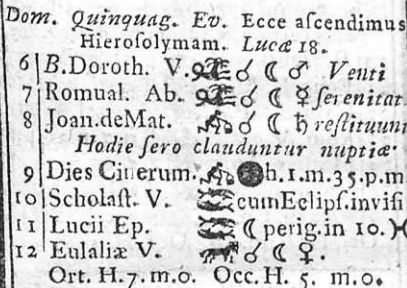 Dom. Quinquag. Ev. Ecce aſcendimus
Hieroſolymam. Lucæ 18.
6 B.Doroth. V. ♑ ☌ ☾ ♂ Venti
7 Romual. Ab. ♑ ☌ ☾ ☿ ſerenitat
8 Joan.deMat. ♒ ☌ ☾ ♄ reſtituunt
Hodie ſero clauduntur nuptiæ·
9 Dies Cinerum. ♒ ● h.1.m.35.p.m
10 Scholaſt. V. ♓ cumEclipſ.inviſi
11 Lucii Ep. ♓ ☾ perig.in 10. ♓
12 Eulaliæ V. ♈ ☌ ☾ ♀.
Ort. H.7. m.0. Occ. H. 5. m.0.